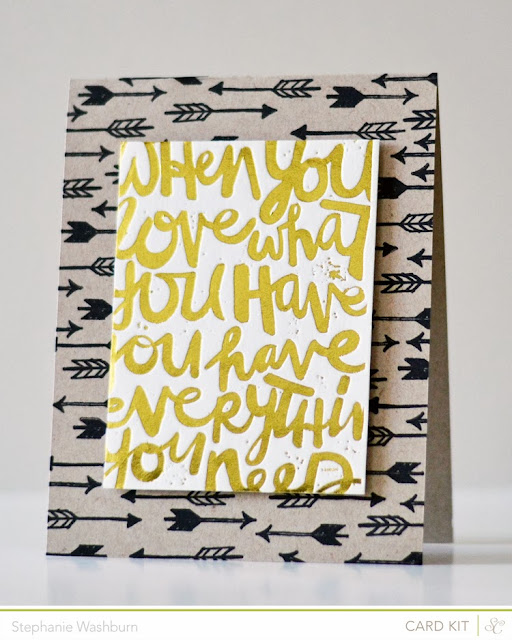 WHEN YOU
love what
YOU HAVE
YOU have
EVERYTHI
YOU NEED
Stephanie Washburn
CARD KIT
SC